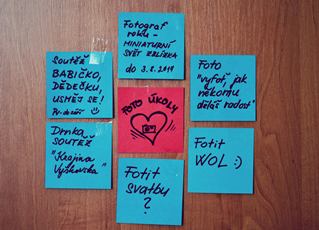 Fotograf
roku -
MINIATURNÍ
SVĚT ZBLÍZKA
do 3.8.2019
Soutěž
BABIČKO,
DĚDEČKU,
USMĚJ SE!
Foto
"vyfoť, jak
někomu
děláš radost"
FOTO ÚKOLY
Drnka
SOUTĚŽ
"Krajina
Vyškovska"
Fotit
WOL :)
Fotit
svatbu
?